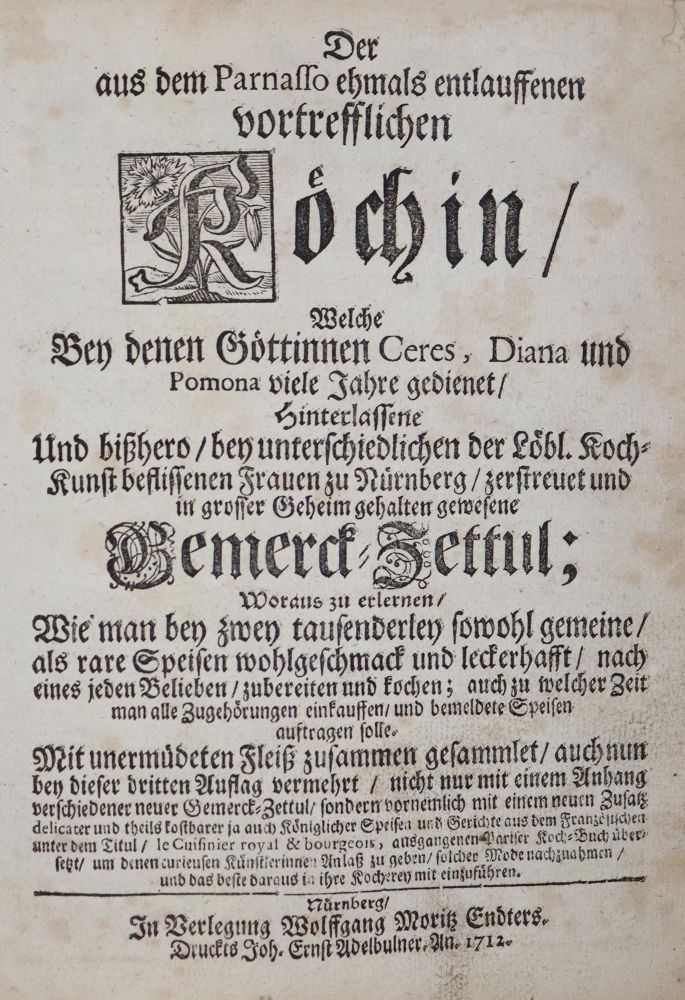 Der
aus dem Parnasso ehmals entlauffenen
vortrefflichen
Köchin/
Welche
Bey denen Göttinnen Ceres, Diana und
Pomona viele Jahre gedienet/
Hinterlassene
Und bißhero/ bey unterschiedlichen der Löbl. Koch-
Kunst beflissenen Frauen zu Nürnberg/ zerstreuet und
in grosser Geheim gehalten gewesene
Gemerck-Zettul;
Woraus zu erlernen/
Wie man bey zwey tausenderley sowohl gemeine/
als rare Speisen wohlgeschmack und leckerhafft/ nach
eines jeden Belieben/ zubereiten und kochen; auch zu welcher Zeit
man alle Zugehörungen einkauffen/ und bemeldete Speisen
auftragen solle.
Mit unermüdeten Fleiß zusammen gesammlet/ auch nun
bey dieser dritten Auflag vermehrt / nicht nur mit einem Anhang
verschiedener neuer Gemerck-Zettul/ sondern vornemlich mit einem neuen Zusatz
delicater und theils kostbarer ja auch Königlicher Speisen und Gerichte aus dem Französischen
unter dem Titul / le Cuisinier royal & bourgeois, ausgangenen Pariser Koch-Buch über-
setzt/ um denen curieusen Künstlerinnen Anlaß zu geben/ solcher Mode nachzuahmen /
und das beste daraus in ihre Kocherey mit einzuführen.
Nürnberg/
In Verlegung Wolffgang Moritz Endters.
Druckts Joh. Ernst Adelbulner. An. 1712.